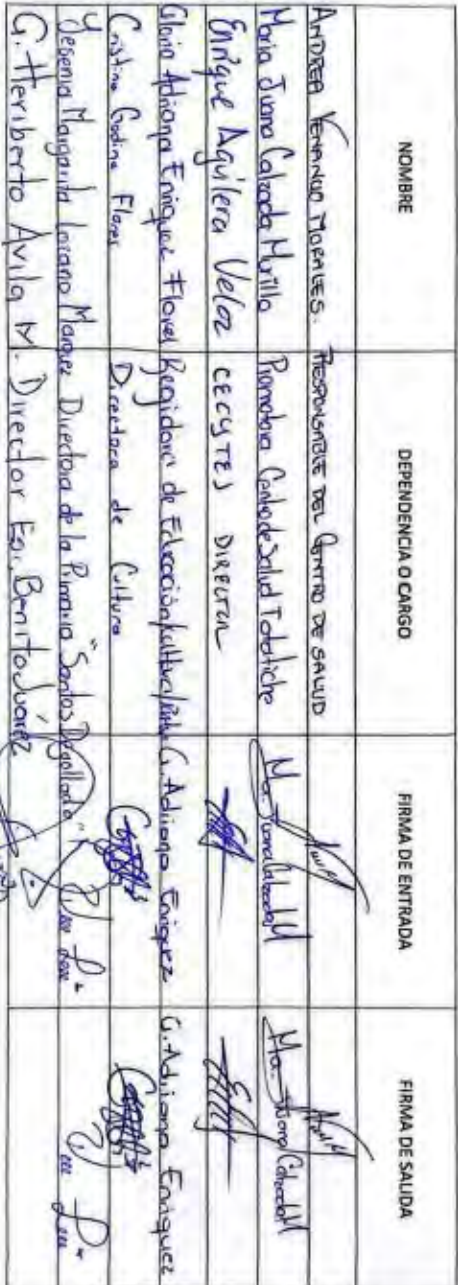 NOMBRE DEPENDENCIA O CARGO FIRMA DE ENTRADA FIRMA DE SALIDA
ANDREA MORALES. RESPONSABLE DEL CENTRO DE SALUD
Maria Juana Calzada Murillo Promotora Centro de Salud Totatiche Ma. Juana Calzada M Ma. Juana Calzada M
Enrique Aguilera Veloz CECYTEJ DIRECTOR
Gloria Adriana Enriquez Flores Regidora de Educación/cultura/ G. Adriana Enriquez G. Adriana Enriquez
Cristina Godina Flores Directora de Cultura
Yesenia Margarita Lozano Marquez Directora de la Primaria "Santos Degollado"
G. Heriberto Avila M. Director Esc. Benito Juárez